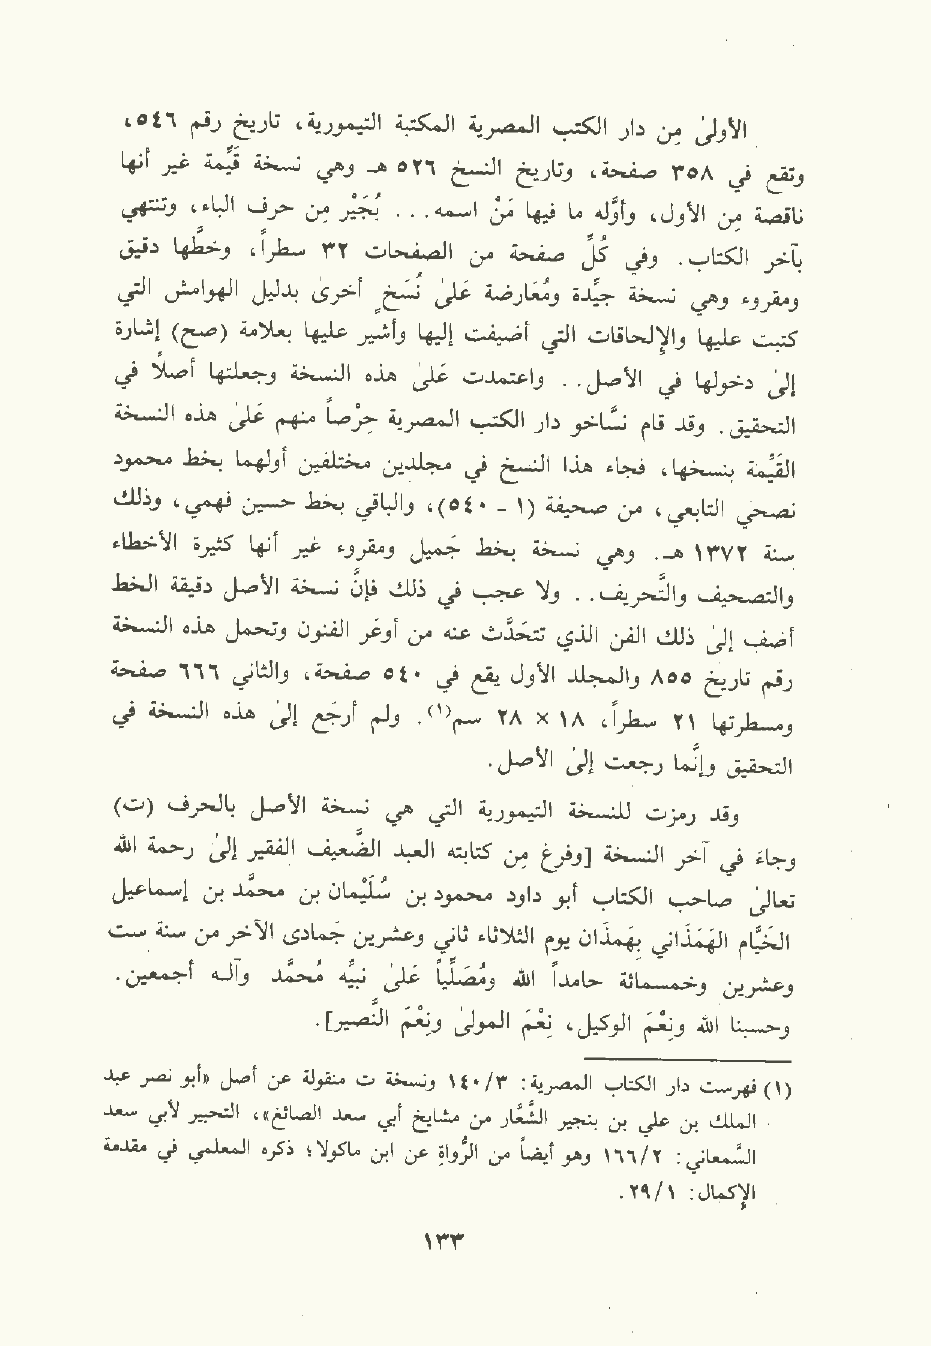 الأولىٰ مِن دار الكتب المصرية المكتبة التيمورية، تاريخ رقم ٥٤٦،
وتقع في ٣٥٨ صفحة، وتاريخ النسخ ٥٢٦ هـ وهي نسخة قيِّمة غير أنها
ناقصة مِن الأول، وأوّله ما فيها مَنْ اسمه... بُجَيْر مِن حرف الباء، وتنتهي
بآخر الكتاب. وفي كُلّ صفحة من الصفحات ٣٢ سطراً، وخطّها دقيق
ومقروء وهي نسخة جيّدة ومُعَارضة علىٰ نُسَخٍ أخرىٰ بدليل الهوامش التي
كتبت عليها والإلحاقات التي أضيفت إليها وأشّر عليها بعلامة (صح) إشارة
إلىٰ دخولها في الأصل.. واعتمدت علىٰ هذه النسخة وجعلتها أصلاً في
التحقيق. وقد قام نسّاخو دار الكتب المصرية حِرْصاً منهم علىٰ هذه النسخة
القيّمة بنسخها، فجاء هذا النسخ في مجلدين مختلفين أولهما بخط محمود
نصحي التابعي، من صحيفة (١ - ٥٤٠)، والباقي بخط حسين فهمي، وذلك
سنة ١٣٧٢ هـ. وهي نسخة بخط جميل ومقروء غير أنها كثيرة الأخطاء
والتصحيف والتّحريف.. ولا عجب في ذلك فإنّ نسخة الأصل دقيقة الخط
أضف إلىٰ ذلك الفن الذي تتحَدّث عنه من أوعَر الفنون وتحمل هذه النسخة
رقم تاريخ ٨٥٥ والمجلد الأول يقع في ٥٤٠ صفحة، والثاني ٦٦٦ صفحة
ومسطرتها ٢١ سطراً، ١٨ × ٢٨ سم(١). ولم أرجَع إلىٰ هذه النسخة في
التحقيق وإنّما رجعت إلىٰ الأصل.
وقد رمزت للنسخة التيمورية التي هي نسخة الأصل بالحرف (ت)
وجاءَ في آخر النسخة [وفرغ مِن كتابته العبد الضّعيف الفقير إلىٰ رحمة الله
تعالىٰ صاحب الكتاب أبو داود محمود بن سُلَيْمان بن محمّد بن إسماعيل
الخيّام الهَمَذَاني بِهَمَذَان يوم الثلاثاء ثاني وعشرين جَمادى الآخر من سنة ست
وعشرين وخمسمائة حامداً الله ومُصَلّياً علىٰ نبيّه مُحمّد وآله أجمعين.
وحسبنا الله ونِعْمَ الوكيل، نِعْمَ المولىٰ ونِعْمَ النّصير].
(١) فهرست دار الكتاب المصرية: ١٤٠/٣ ونسخة ت منقولة عن أصل «أبو نصر عبد
الملك بن علي بن بنجير الشّعّار من مشايخ أبي سعد الصائغ»، التحبير لأبي سعد
السّمعاني: ١٦٦/٢ وهو أيضاً من الرُواةِ عن ابن ماكولا؛ ذكره المعلمي في مقدمة
الإكمال: ٢٩/١.
١٣٣